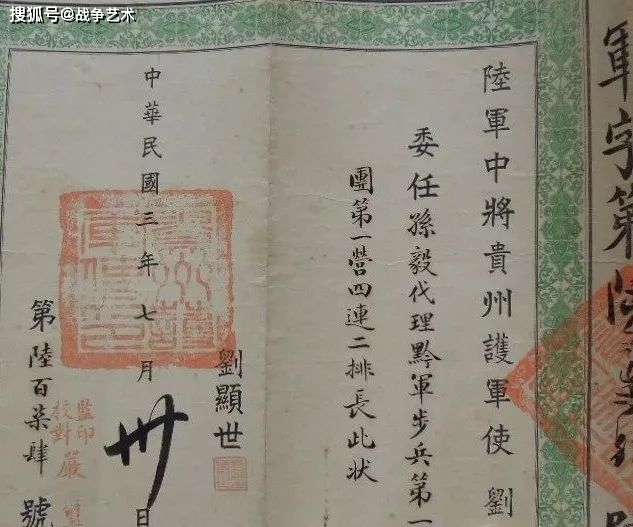 搜狐号@战争艺术
軍字第陸
陸軍中將貴州護軍使劉
委任孫毅代理黔軍步兵第一
團第一營四連二排長此狀
劉顯世
中華民國三年七月卅日
第陸百柒肆號
監印
校對
嚴